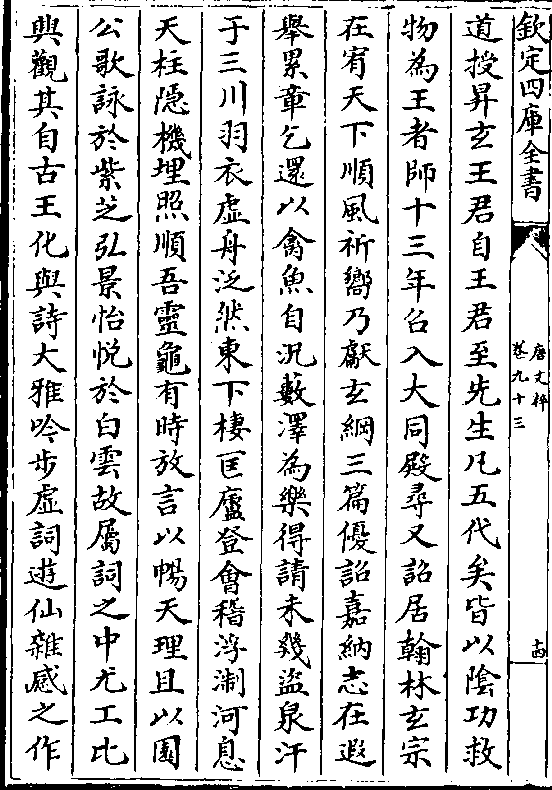 欽定四庫全書
唐文粹
卷九十三
十四
道授昇玄王君自王君至先生凡五代矣皆以陰功救
物為王者師十三年召入大同殿尋又詔居翰林玄宗
在宥天下順風祈嚮乃獻玄綱三篇優詔嘉納志在遐
舉累章乞還以禽魚自況藪澤為樂得請未幾盜泉汙
于三川羽衣虛舟泛然東下棲匡廬登會稽浮淛河息
天柱隱機埋照順吾靈龜有時放言以暢天理且以園
公歌詠於紫芝弘景怡悅於白雲故屬詞之中尤工比
興觀其自古王化與詩大雅吟步虛詞遊仙雜感之作